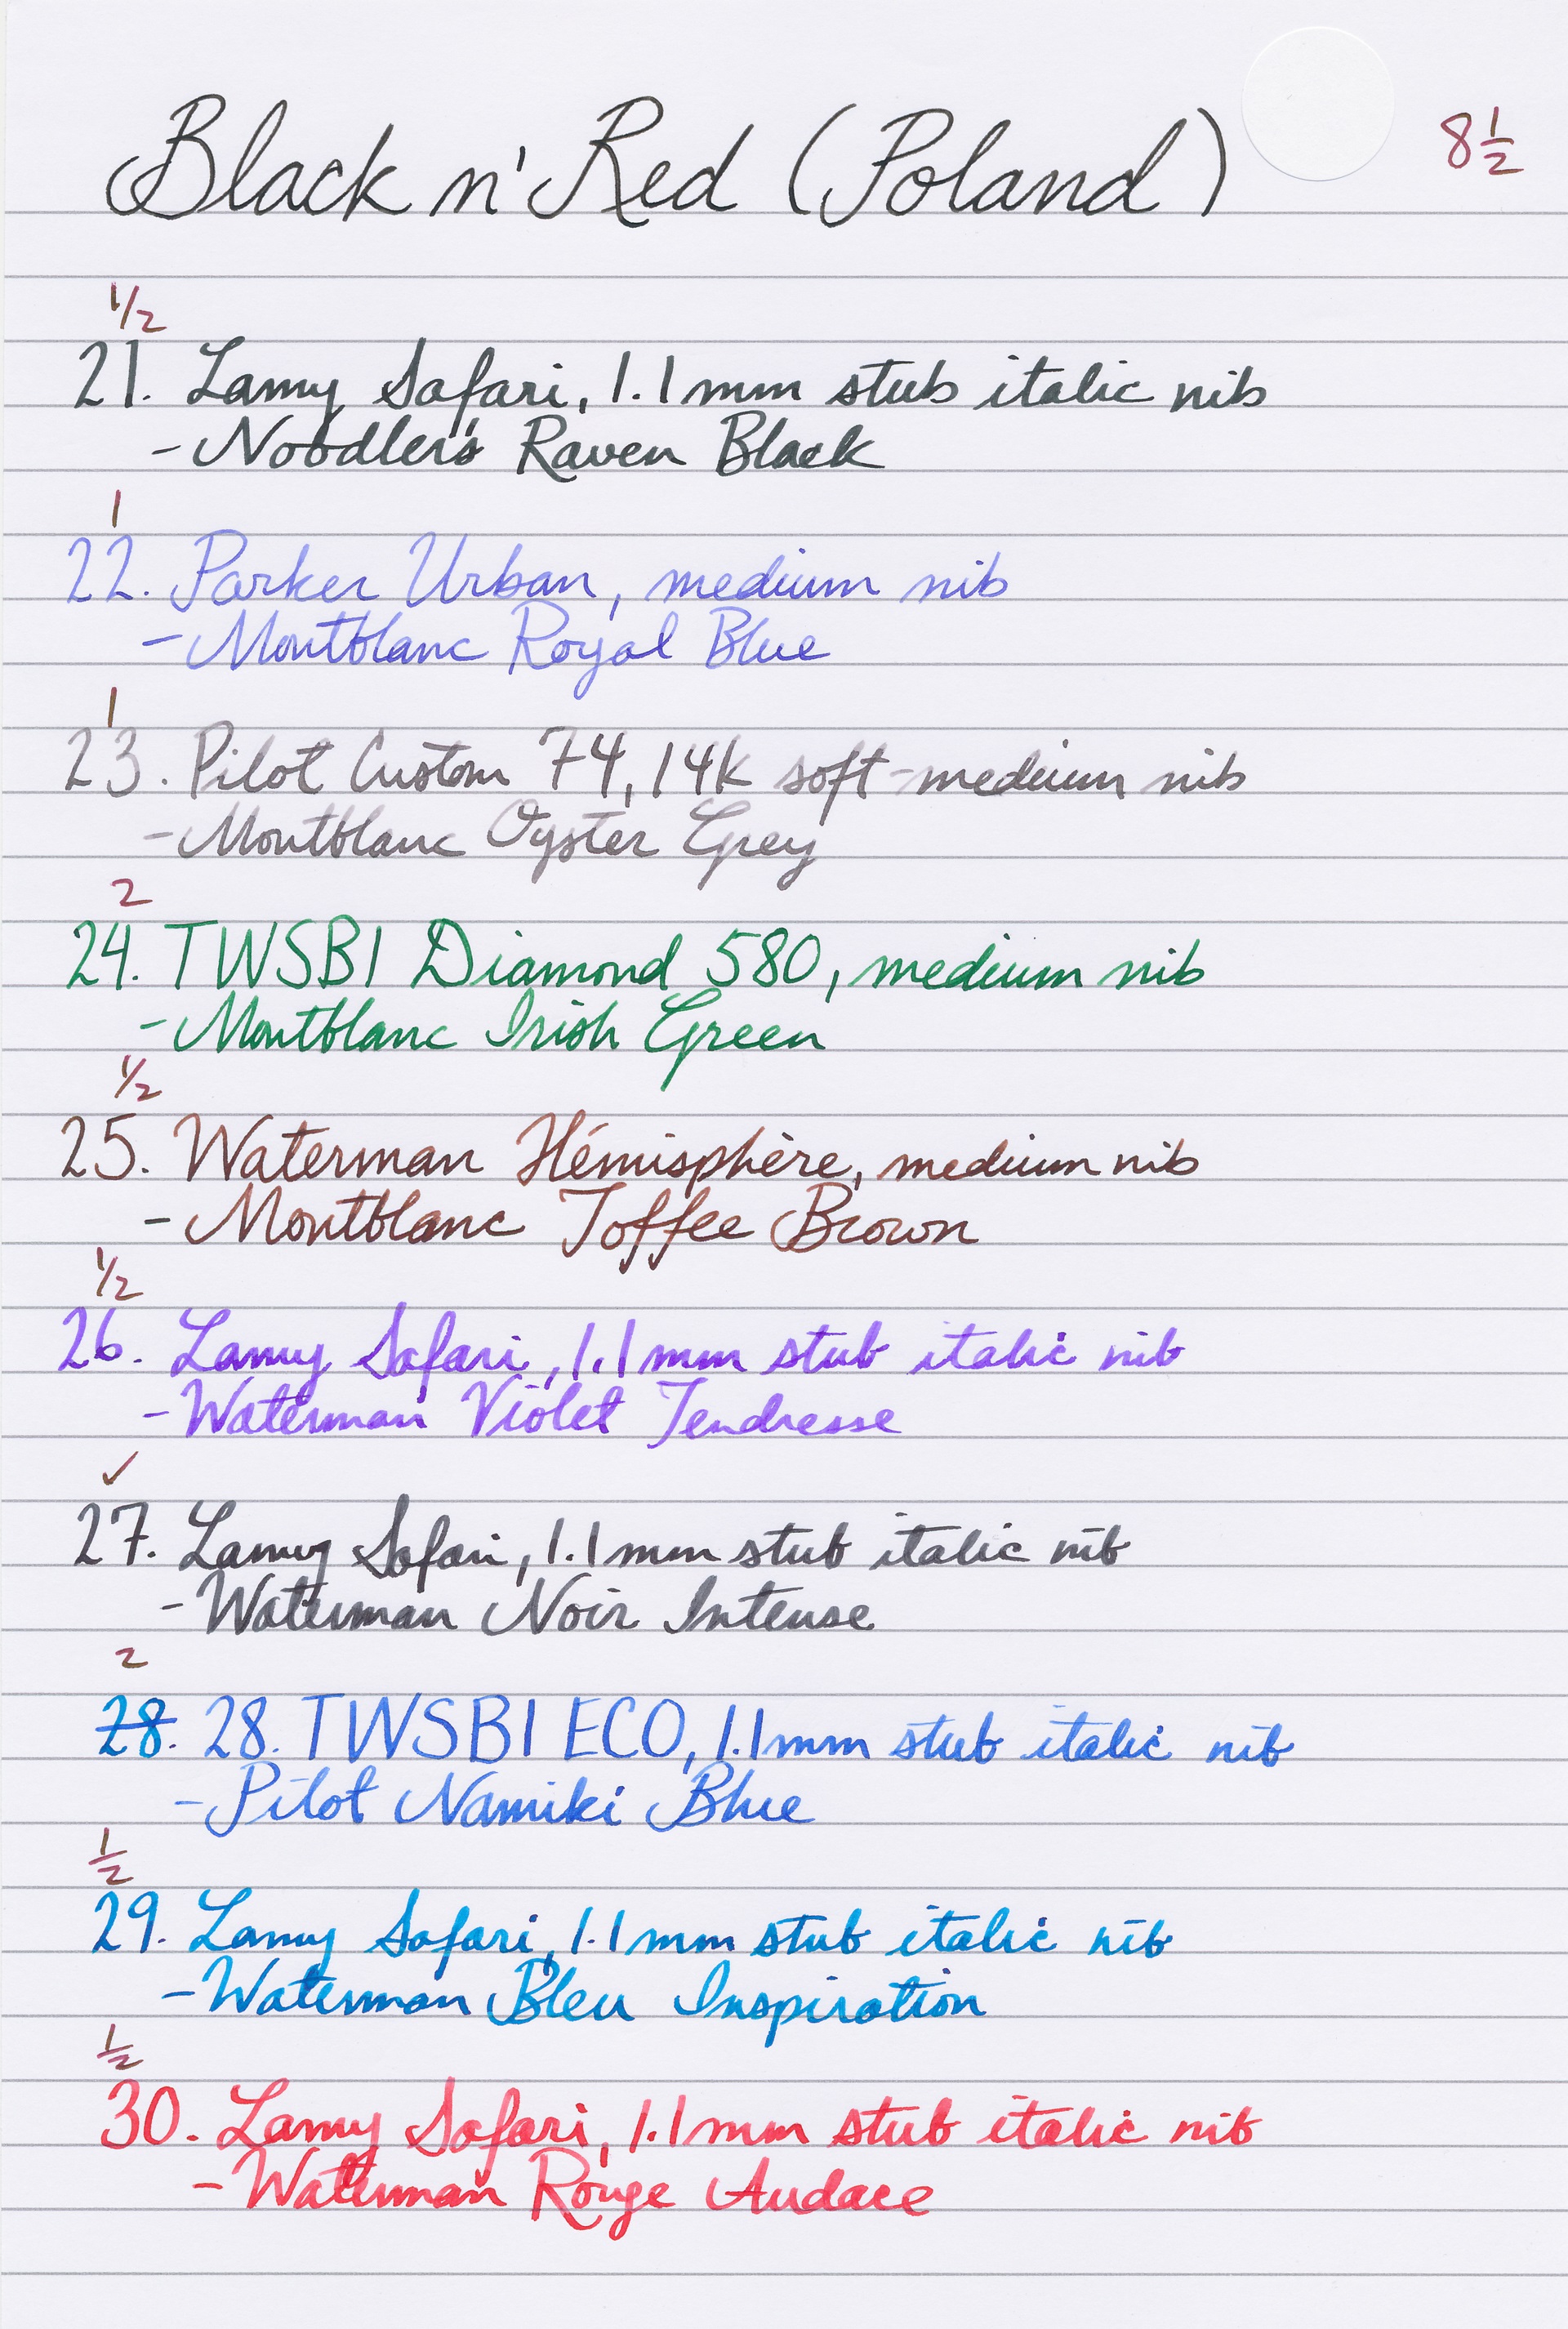 Black n' Red (Poland)
8 1/2
1/2
21. Lamy Safari, 1.1mm stub italic nib
-Noodler's Raven Black
1
22. Parker Urban, medium nib
-Montblanc Royal Blue
1
23. Pilot Custom 74, 14k soft-medium nib
-Montblanc Oyster Grey
2
24. TWSBI Diamond 580, medium nib
-Montblanc Irish Green
1/2
25. Waterman Hémisphère, medium nib
-Montblanc Toffee Brown
1/2
26. Lamy Safari, 1.1mm stub italic nib
-Waterman Violet Tendresse
✓
27. Lamy Safari, 1.1mm stub italic nib
-Waterman Noir Intense
2
28. 28. TWSBI ECO, 1.1mm stub italic nib
-Pilot Namiki Blue
1/2
29. Lamy Safari, 1.1mm stub italic nib
-Waterman Bleu Inspiration
1/2
30. Lamy Safari, 1.1mm stub italic nib
-Waterman Rouge Audace